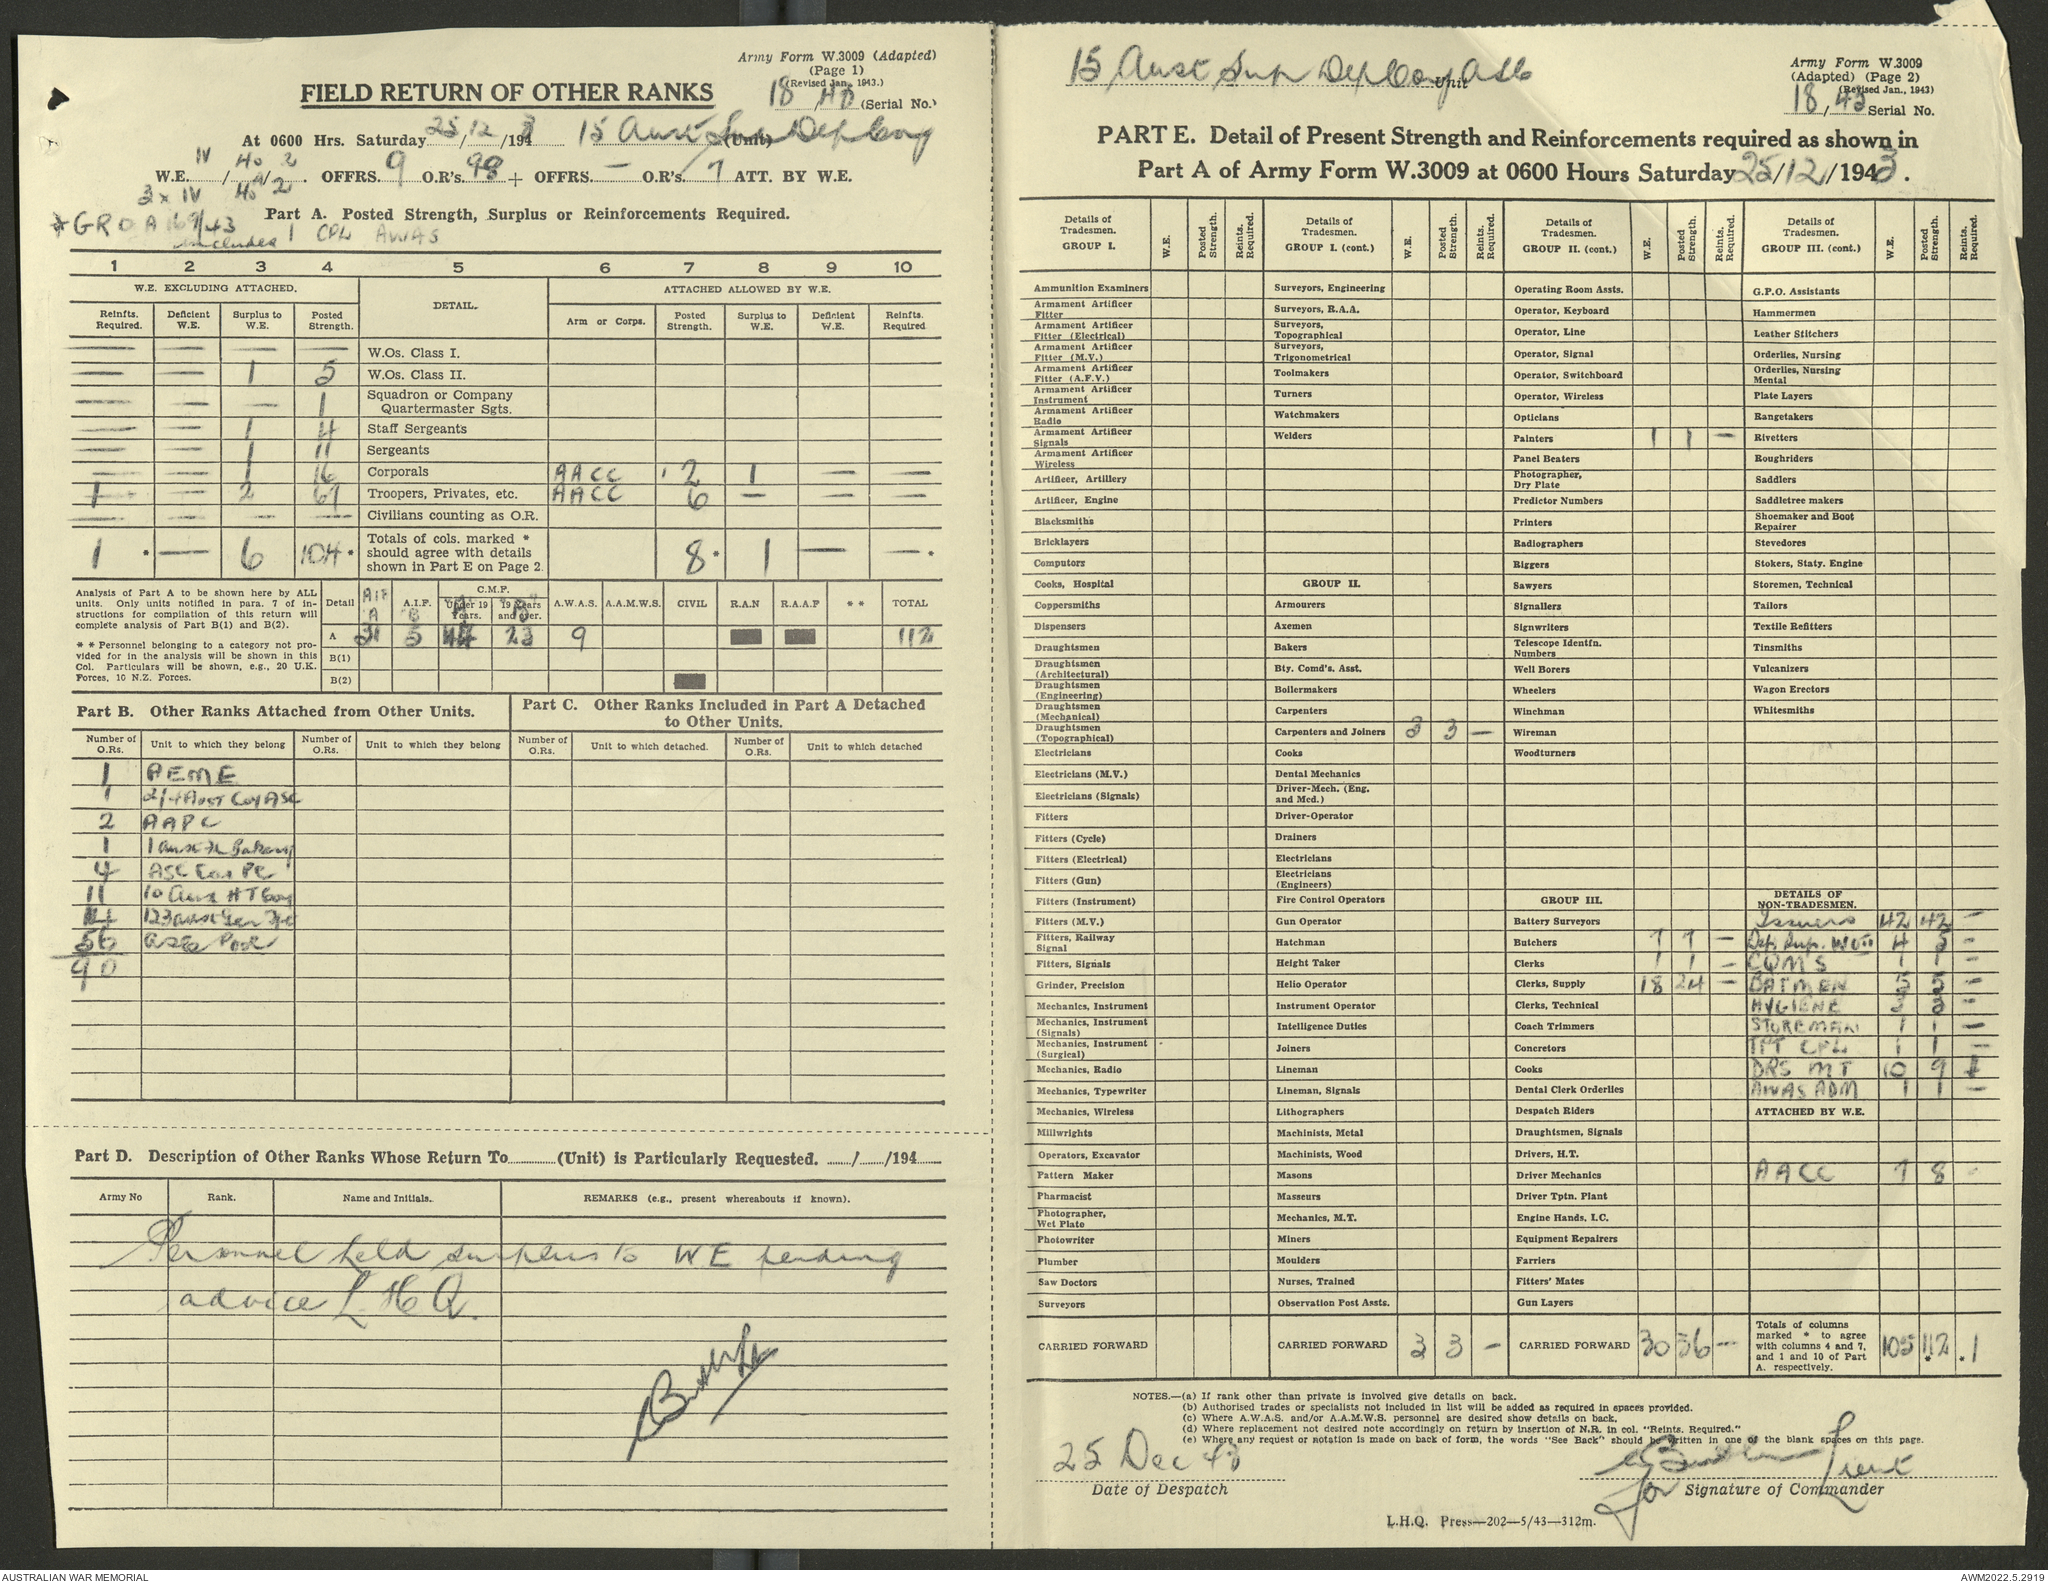 Army Form W.3009 (Adapted)
(Page 1)
(Revised Jan., 1943.)
FIELD RETURN OF OTHER RANKS
18/43 (Serial No.)
At 0600 Hrs. Saturday 25/12/1943 15 Aust Sup Dep Coy (Unit)
W.E. IV/40/2 OFFRS. 9 O.R's. 98 + OFFRS. — O.R's/ 7 ATT. BY W.E.
3 x IV 40A/2
* GRO A 169/43 Part A. Posted Strength, Surplus or Reinforcements Required.
includes 1 CPL AWAS
1 2 3 4 5 6 7 8 9 10
W.E. EXCLUDING ATTACHED. DETAIL. ATTACHED ALLOWED BY W.E.
Reinfts. Required. Deficient W.E. Surplus to W.E. Posted Strength. Arm or Corps. Posted Strength. Surplus to W.E. Deficient W.E. Reinfts. Required
— — — — W.Os. Class I.
— — 1 5 W.Os. Class II.
— — — 1 Squadron or Company Quartermaster Sgts.
— — 1 4 Staff Sergeants
— — 1 11 Sergeants
— — 1 16 Corporals AACC 2 1 — —
1 — 2 67 Troopers, Privates, etc. AACC 6 — — —
— — — — Civilians counting as O.R.
1 * — 6 104 * Totals of cols. marked * should agree with details shown in Part E on Page 2. 8 * 1 — — *
Analysis of Part A to be shown here by ALL units. Only units notified in para. 7 of instructions for compilation of this return will complete analysis of Part B(1) and B(2).
* * Personnel belonging to a category not provided for in the analysis will be shown in this Col. Particulars will be shown, e.g., 20 U.K. Forces, 10 N.Z. Forces.
Detail AIF "A" A.I.F. "B" C.M.F. Under 19 Years. "A" 19 Years and over. "B" A.W.A.S. A.A.M.W.S. CIVIL R.A.N R.A.A.F * * TOTAL
A 31 5 44 23 9 112
B(1)
B(2)
Part B. Other Ranks Attached from Other Units.
Part C. Other Ranks Included in Part A Detached to Other Units.
Number of O.Rs. Unit to which they belong Number of O.Rs. Unit to which they belong Number of O.Rs. Unit to which detached. Number of O.Rs. Unit to which detached
1 AEME
1 2/4 Aust Coy ASC
2 AAPC
1 1 Aust Fd Bakery
4 ASC Con PC
11 10 Aust HT Coy
14 123 Aust Gen Tpt
56 Pool
90
Part D. Description of Other Ranks Whose Return To (Unit) is Particularly Requested. / /194
Army No Rank. Name and Initials. REMARKS (e.g., present whereabouts if known).
Personnel held surplus to WE pending
advice L.H.Q.
15 Aust Sup Dep Coy AASC Unit
Army Form W.3009
(Adapted) (Page 2)
(Revised Jan., 1943)
18/43 Serial No.
PART E. Detail of Present Strength and Reinforcements required as shown in
Part A of Army Form W.3009 at 0600 Hours Saturday 25/12/1943.
Details of Tradesmen. GROUP I. W.E. Posted Strength. Reints. Required.
Ammunition Examiners
Armament Artificer Fitter
Armament Artificer Fitter (Electrical)
Armament Artificer Fitter (M.V.)
Armament Artificer Fitter (A.F.V.)
Armament Artificer Instrument
Armament Artificer Radio
Armament Artificer Signals
Armament Artificer Wireless
Artificer, Artillery
Artificer, Engine
Blacksmiths
Bricklayers
Computors
Cooks, Hospital
Coppersmiths
Dispensers
Draughtsmen
Draughtsmen (Architectural)
Draughtsmen (Engineering)
Draughtsmen (Mechanical)
Draughtsmen (Topographical)
Electricians
Electricians (M.V.)
Electricians (Signals)
Fitters
Fitters (Cycle)
Fitters (Electrical)
Fitters (Gun)
Fitters (Instrument)
Fitters (M.V.)
Fitters, Railway Signal
Fitters, Signals
Grinder, Precision
Mechanics, Instrument
Mechanics, Instrument (Signals)
Mechanics, Instrument (Surgical)
Mechanics, Radio
Mechanics, Typewriter
Mechanics, Wireless
Millwrights
Operators, Excavator
Pattern Maker
Pharmacist
Photographer, Wet Plate
Photowriter
Plumber
Saw Doctors
Surveyors
CARRIED FORWARD
Details of Tradesmen. GROUP I. (cont.) W.E. Posted Strength. Reints. Required.
Surveyors, Engineering
Surveyors, R.A.A.
Surveyors, Topographical
Surveyors, Trigonometrical
Toolmakers
Turners
Watchmakers
Welders
GROUP II.
Armourers
Axemen
Bakers
Bty. Comd's. Asst.
Boilermakers
Carpenters
Carpenters and Joiners 3 3 —
Cooks
Dental Mechanics
Driver-Mech. (Eng. and Med.)
Driver-Operator
Drainers
Electricians
Electricians (Engineers)
Fire Control Operators
Gun Operator
Hatchman
Height Taker
Helio Operator
Instrument Operator
Intelligence Duties
Joiners
Lineman
Lineman, Signals
Lithographers
Machinists, Metal
Machinists, Wood
Masons
Masseurs
Mechanics, M.T.
Miners
Moulders
Nurses, Trained
Observation Post Assts.
CARRIED FORWARD 3 3 —
Details of Tradesmen. GROUP II. (cont.) W.E. Posted Strength. Reints. Required.
Operating Room Assts.
Operator, Keyboard
Operator, Line
Operator, Signal
Operator, Switchboard
Operator, Wireless
Opticians
Painters 1 1 —
Panel Beaters
Photographer, Dry Plate
Predictor Numbers
Printers
Radiographers
Riggers
Sawyers
Signallers
Signwriters
Telescope Identfn. Numbers
Well Borers
Wheelers
Winchman
Wireman
Woodturners
GROUP III.
Battery Surveyors
Butchers 7 7 —
Clerks 1 1 —
Clerks, Supply 18 24 —
Clerks, Technical
Coach Trimmers
Concretors
Cooks
Dental Clerk Orderlies
Despatch Riders
Draughtsmen, Signals
Drivers, H.T.
Driver Mechanics
Driver Tptn. Plant
Engine Hands, I.C.
Equipment Repairers
Farriers
Fitters' Mates
Gun Layers
CARRIED FORWARD 30 36 —
Details of Tradesmen. GROUP III. (cont.) W.E. Posted Strength. Reints. Required.
G.P.O. Assistants
Hammermen
Leather Stitchers
Orderlies, Nursing
Orderlies, Nursing Mental
Plate Layers
Rangetakers
Rivetters
Roughriders
Saddlers
Saddletree makers
Shoemaker and Boot Repairer
Stevedores
Stokers, Staty. Engine
Storemen, Technical
Tailors
Textile Refitters
Tinsmiths
Vulcanizers
Wagon Erectors
Whitesmiths
DETAILS OF NON-TRADESMEN.
Issuers 42 42 —
Dep. Sup. WOII 4 5 —
CQMS 1 1 —
BATMEN 5 5 —
HYGIENE 3 3 —
STOREMAN 1 1 —
TPT CPL 1 1 —
DRS MT 10 9 1
AWAS ADM 1 1 —
ATTACHED BY W.E.
AACC 7 8 -
Totals of columns marked * to agree with columns 4 and 7, and 1 and 10 of Part A. respectively. 105 112 * 1
NOTES.—(a) If rank other than private is involved give details on back.
(b) Authorised trades or specialists not included in list will be added as required in spaces provided.
(c) Where A.W.A.S. and/or A.A.M.W.S. personnel are desired show details on back.
(d) Where replacement not desired note accordingly on return by insertion of N.R. in col. "Reints. Required."
(e) Where any request or notation is made on back of form, the words "See Back" should be written in one of the blank spaces on this page.
25 Dec 43
Date of Despatch
Lieut
for Signature of Commander
L.H.Q. Press—202—5/43—312m.
AUSTRALIAN WAR MEMORIAL
AWM2022.5.2919